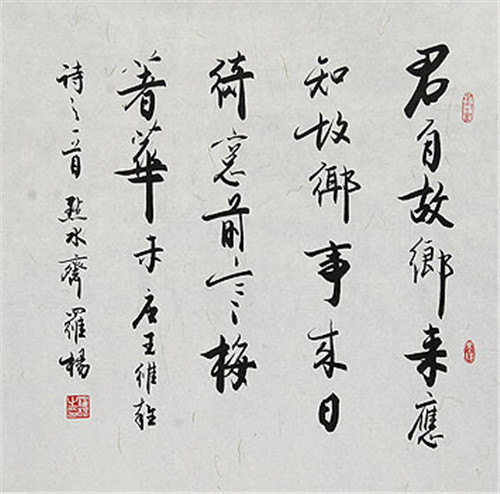 君自故鄉来應
知故鄉事来日
綺窓前寒梅
著華未 唐王維雜
詩之一首 點水齋 羅楊